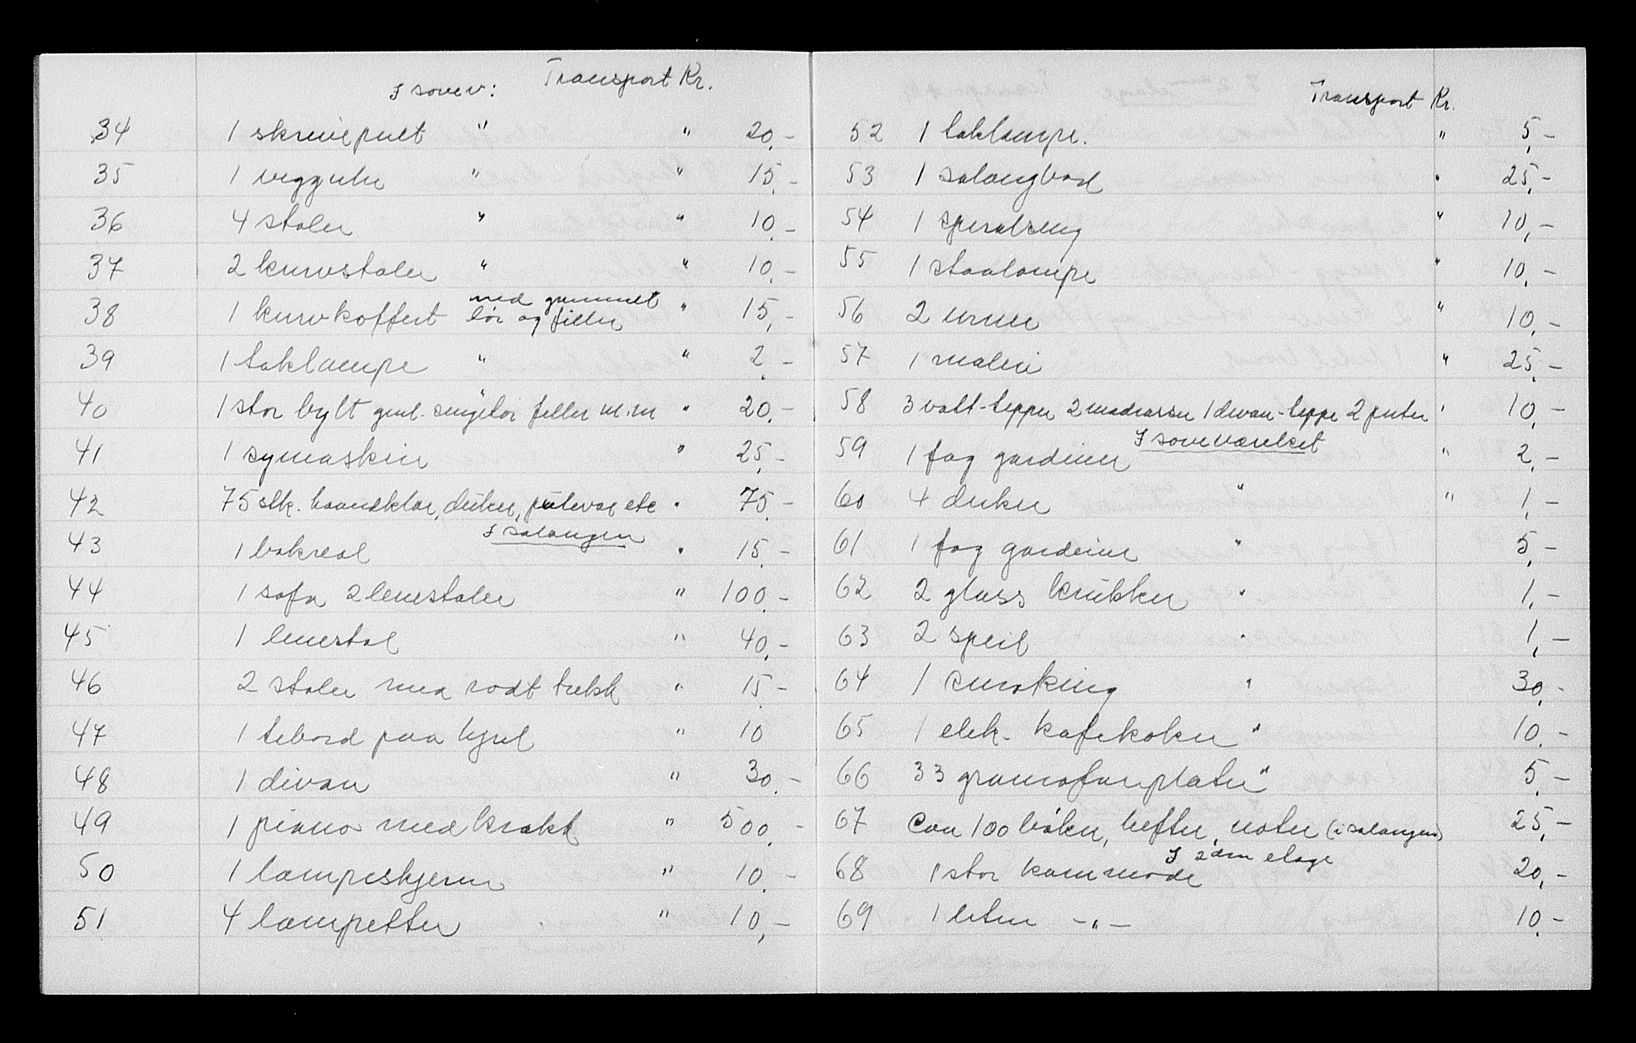 I sovev: Transport Kr.
34 1 skrivepult " " 20,-
35 1 veggur " " 15,-
36 4 stoler " " 10,-
37 2 kurvstoler " " 10,-
38 1 kurvkoffert med gammelt tøi og filler " 15,-
39 1 taklampe " " 2,-
40 1 stor bylt gml. sengetøi filler m.m " 20,-
41 1 symaskin " 25,-
42 75 stk. haandklær, duker, putevar etc " 75,-
I salongen
43 1 bokreol " 15,-
44 1 sofa 2 lenestoler " 100,-
45 1 lenestol " 40,-
46 2 stoler med rødt trekk " 15,-
47 1 tebord paa hjul " 10
48 1 divan " 30,-
49 1 piano med krakk " 500,-
50 1 lampeskjerm " 10,-
51 4 lampetter " 10,-
Transport Kr.
52 1 taklampe. " 5,-
53 1 salongbord " 25,-
54 1 spiralseng " 10,-
55 1 staalampe " 10,-
56 2 urner " 10,-
57 1 maleri " 25,-
58 3 vatt-tepper 2 madrasser 1 divan-teppe 2 puter " 10,-
I soveværelset
59 1 fag gardiner " 2,-
60 4 duker " " 1,-
61 1 fag gardiner " 5,-
62 2 glass krukker " 1,-
63 2 speil " 1,-
64 1 smoking " 30,-
65 1 elek. kafekoker " 10,-
66 33 gramofonplater " 5,-
67 Caa 100 bøker, hefter, noter (i salongen) 25,-
I 2den etage
68 1 stor kommode 20,-
69 1 liten -"- 10,-